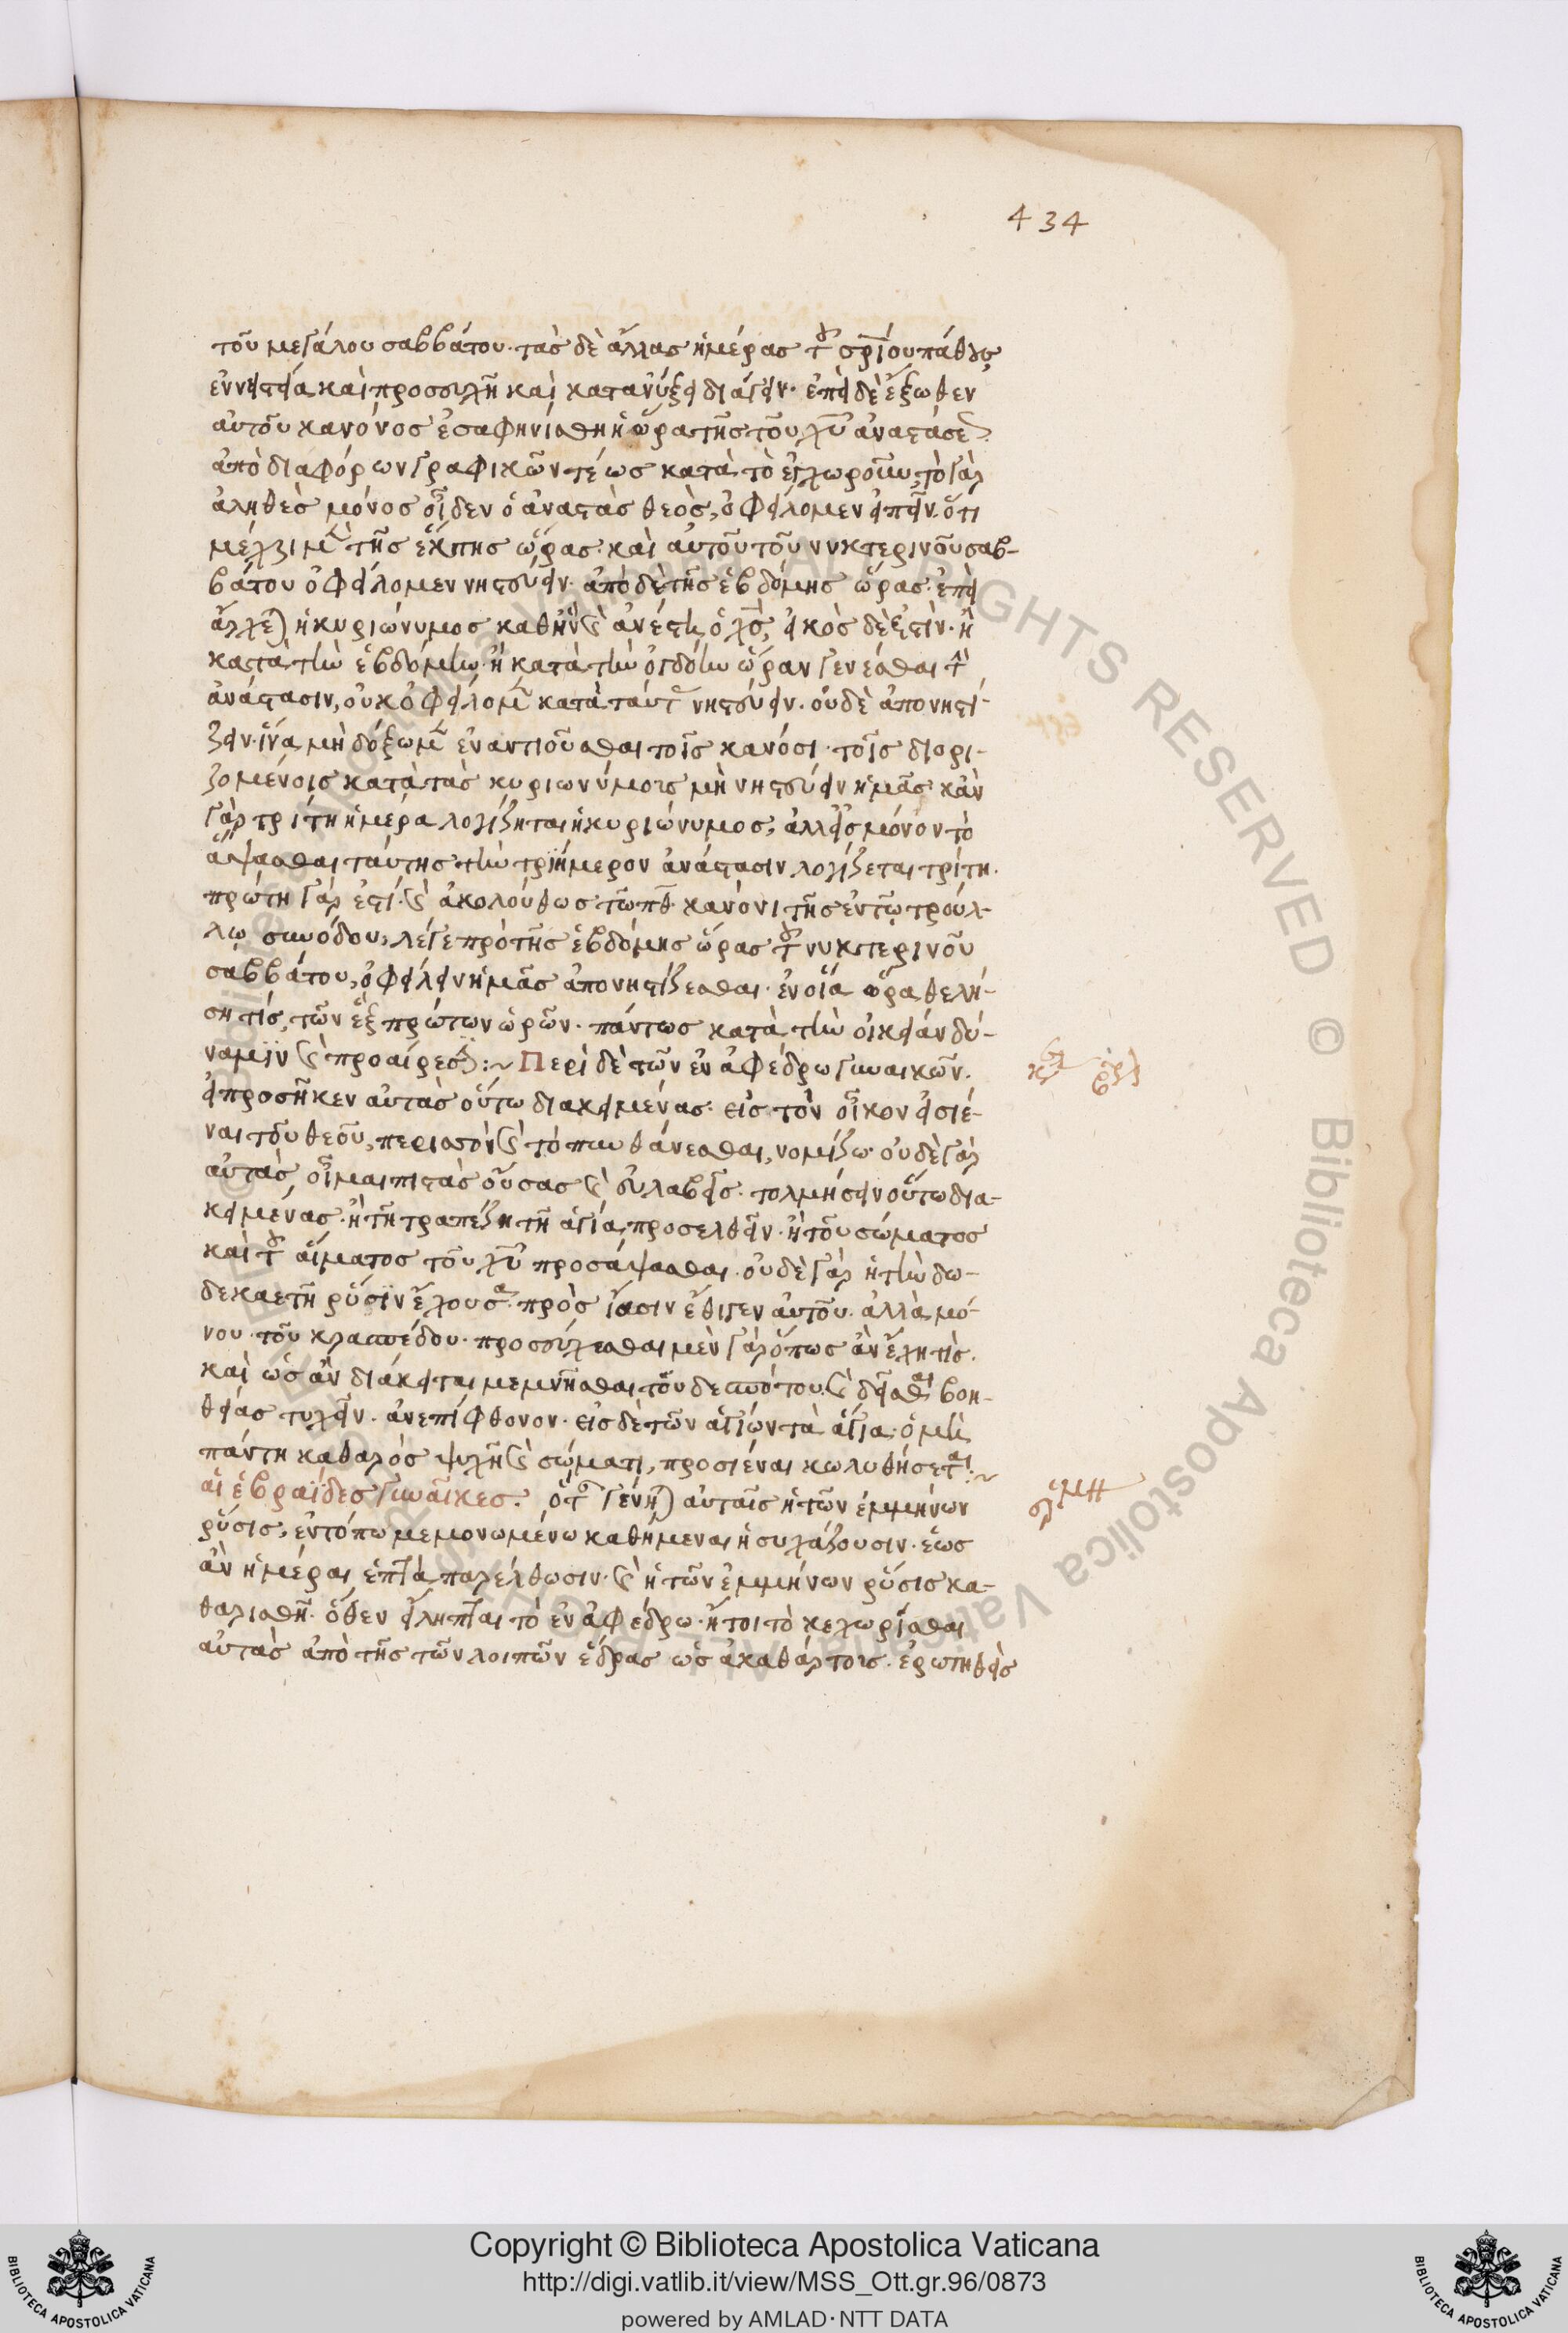 434
τοῦ μεγάλου σαββάτου· τὰς δὲ ἄλλας ἡμέρας τοῦ σρίου πάθους
ἐν νηστεία καὶ προσευχῆ καὶ κατανύξει διάγειν· ἐπεὶ δὲ ἔξωθεν
αὐτοῦ κανόνος ἐσαφηνίσθη ἡ ὥρα τῆς τοῦ χυ ἀναστάσεως
ἀπὸ διαφόρων γραφικῶν τέως κατὰ τὸ ἐγχωροῦν, τὸ γὰρ
ἀληθὲς μόνος οἶδεν ὁ ἀναστὰς θεὸς, ὀφείλομεν εἰπεῖν ὅτι
μέχρι μὲν τῆς ἕκτης ὥρας· καὶ αὐτοῦ τοῦ νυκτερινοῦ σαβ-
βάτου ὀφείλομεν νηστεύειν· ἀπὸ δὲ τῆς ἑβδόμης ὥρας· ἐπεὶ
ἄρχεται ἡ κυριώνυμος καθ' ἣν καὶ ἀνέστη ὁ χς, εἰκὸς δὲ ἐστὶν· ἢ
κατὰ τὴν ἑβδόμην· ἢ κατὰ τὴν ὀγδόην ὥραν γενέσθαι τὴν
ἀνάστασιν, οὐκ ὀφείλομεν κατὰ ταύτην νηστεύειν· οὐδὲ ἀπονηστί-
ζειν· ἵνα μὴ δόξωμεν ἐναντιοῦσθαι τοῖς κανόσι· τοῖς διορι-
ζομένοις κατὰ τὰς κυριωνύμους μὴ νηστεύειν ἡμᾶς κἂν
γὰρ τρίτη ἡμέρα λογίζηται ἡ κυριώνυμος, ἀλλ' εἰς μόνον τὸ
ἅψασθαι ταύτης τὴν τριήμερον ἀνάστασιν λογίζεται τρίτη·
πρώτη γὰρ ἐστί· καὶ ἀκολούθως τῶ πθ κανόνι τῆς ἐν τῶ τρούλ-
λω συνόδου, λέγε πρὸ τῆς ἑβδόμης ὥρας τοῦ νυκτερινοῦ
σαββάτου, ὀφείλειν ἡμᾶς ἀπονηστίζεσθαι· ἐν οἵα ὥρα θελή-
ση τίς, τῶν ἓξ πρώτων ὡρῶν· πάντως κατὰ τὴν οἰκείαν δύ-
ναμιν καὶ προαίρεσιν:~ Περὶ δὲ τῶν ἐν ἀφέδρω γυναικῶν·
εἰ προσῆκεν αὐτὰς οὕτω διακειμένας· εἰς τὸν οἶκον εἰσιέ-
ναι τοῦ θεοῦ, περισσὸν καὶ τὸ πυνθάνεσθαι, νομίζω· οὐδὲ γὰρ
αὐτὰς οἶμαι πιστὰς οὔσας καὶ εὐλαβεῖς· τολμήσειν οὕτω δια-
κειμένας· ἢ τῆ τραπέζη τῆ ἁγία προσελθεῖν· ἢ τοῦ σώματος
καὶ τοῦ αἵματος τοῦ χυ προσάψασθαι· οὐδὲ γὰρ ἡ τὴν δω-
δεκαετῆ ῥύσιν ἔχουσα πρὸς ἴασιν ἔθιγεν αὐτοῦ· ἀλλὰ μό-
νου· τοῦ κρασπέδου· προσεύχεσθαι μὲν γὰρ ὅπως ἂν ἔχη τίς·
καὶ ὡς ἂν διάκειται μεμνῆσθαι τοῦ δεσπότου· καὶ δεῖσθαι βοη-
θείας τυχεῖν· ἀνεπίφθονον· εἰς δὲ τῶν ἁγίων τὰ ἅγια· ὁ μὴ
πάντη καθαρὸς ψυχῆ καὶ σώματι, προσιέναι κωλυθήσεται:~
αἱ ἑβραΐδες γυναῖκες· ὅταν γένηται αὐταῖς ἡ τῶν ἐμμήνων
ῥύσις, ἐν τόπω μεμονωμένω καθήμεναι ἡσυχάζουσιν· ἕως
ἂν ἡμέραι ἑπτὰ παρέλθωσιν· καὶ ἡ τῶν ἐμμήνων ῥύσις κα-
θαρισθῆ· ὅθεν εἴληπται τὸ ἐν ἀφέδρω· ἤτοι τὸ κεχωρίσθαι
αὐτὰς ἀπὸ τῆς τῶν λοιπῶν ἕδρας ὡς ἀκαθάρτους· ἐρωτηθεὶς
Copyright © Biblioteca Apostolica Vaticana
http://digi.vatlib.it/view/MSS_Ott.gr.96/0873
powered by AMLAD·NTT DATA
BIBLIOTECA APOSTOLICA VATICANA
BIBLIOTECA APOSTOLICA VATICANA